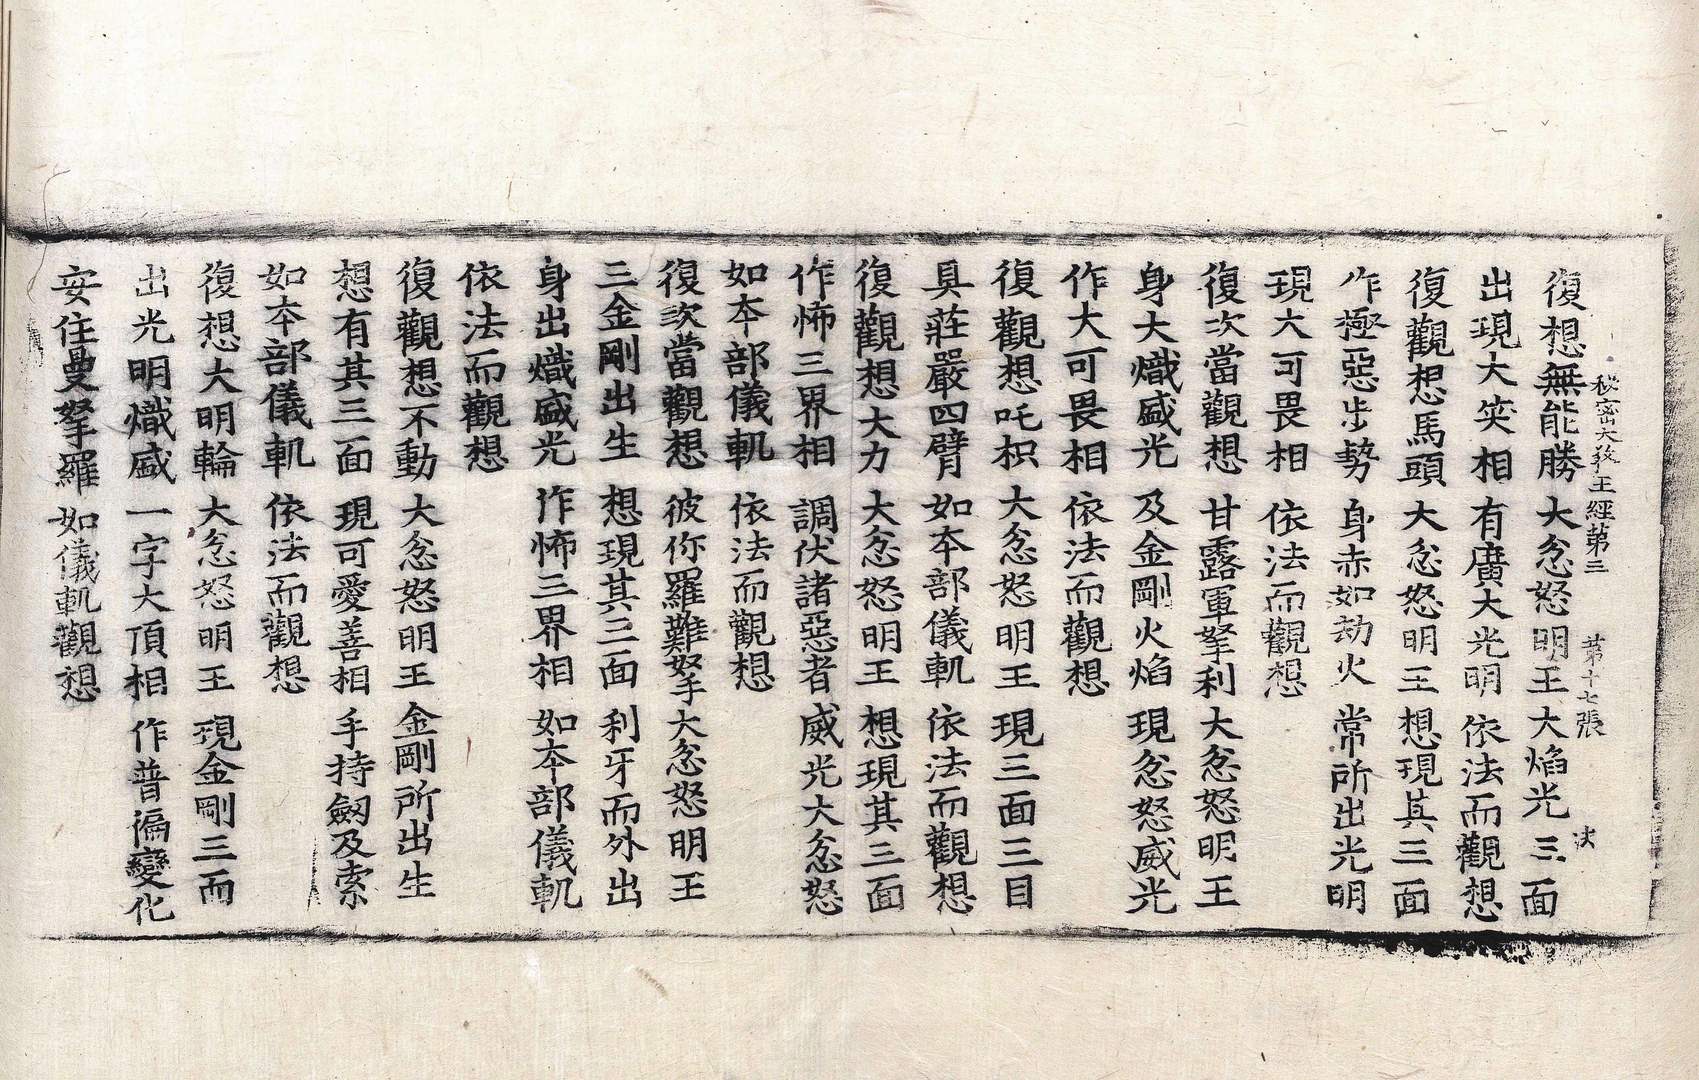 秘密大教王經第三 第十七張
復想無能勝 大忿怒明王 大焰光三面
出現大笑相 有廣大光明 依法而觀想
復觀想馬頭 大忿怒明王 想現其三面
作極惡步勢 身赤如劫火 常所出光明
現大可畏相 依法而觀想
復次當觀想 甘露軍拏利 大忿怒明王
身大熾盛光 及金剛火焰 現忿怒威光
作大可畏相 依法而觀想
復觀想吒枳 大忿怒明王 現三面三目
具莊嚴四臂 如本部儀軌 依法而觀想
復觀想大力 大忿怒明王 想現其三面
作怖三界相 調伏諸惡者 威光大忿怒
如本部儀軌 依法而觀想
復次當觀想 彼你羅難拏 大忿怒明王
三金剛出生 想現其三面 利牙而外出
身出熾盛光 作怖三界相 如本部儀軌
依法而觀想
復觀想不動 大忿怒明王 金剛所出生
想有其三面 現可愛善相 手持劔及索
如本部儀軌 依法而觀想
復想大明輪 大忿怒明王 現金剛三面
出光明熾盛 一字大頂相 作普徧變化
安住曼拏羅 如儀軌觀想